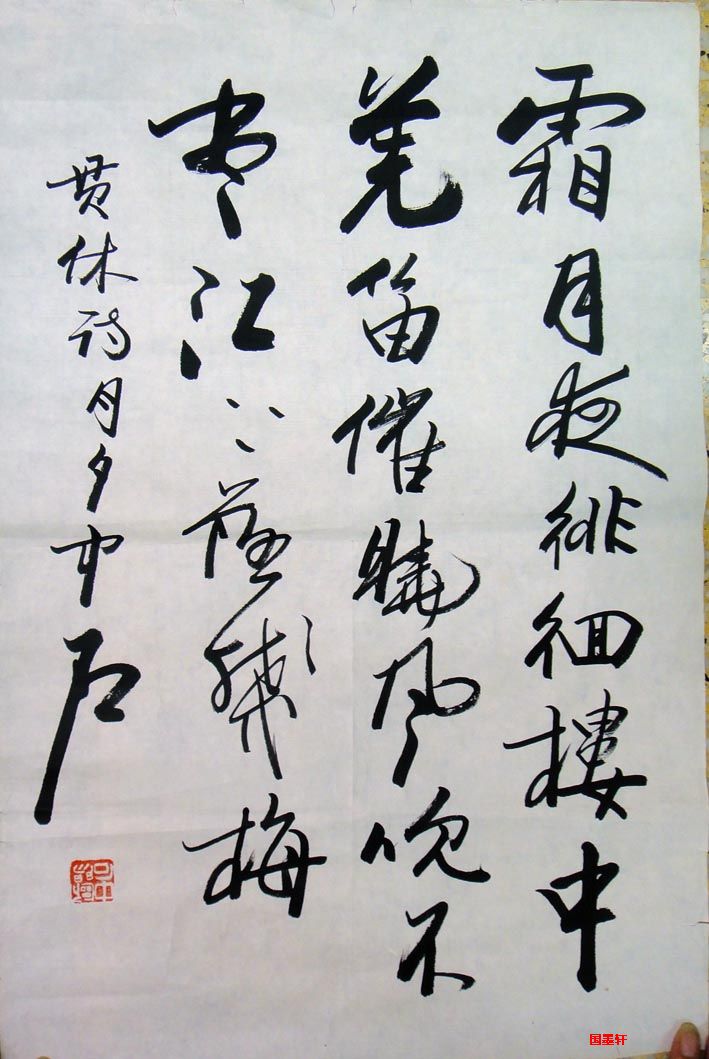 霜月夜徘徊樓中
羌笛催曉風吹不
尽江上落残梅
贯休诗月夕中石
国墨轩